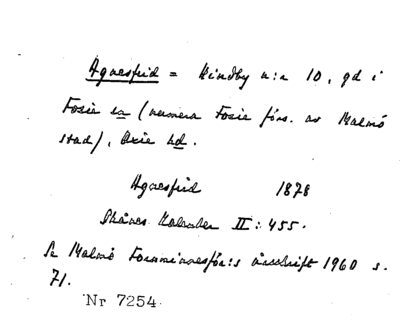 Agnesfrid = Hindby n:r 10, gd i
Fosie sn (numera Fosie förs. av Malmö
stad), Oxie hd.
Agnesfrid 1878
Skånes Kalender II: 455.
Se Malmö Fornminnesför:s årsskrift 1960 s.
71.
Nr 7254